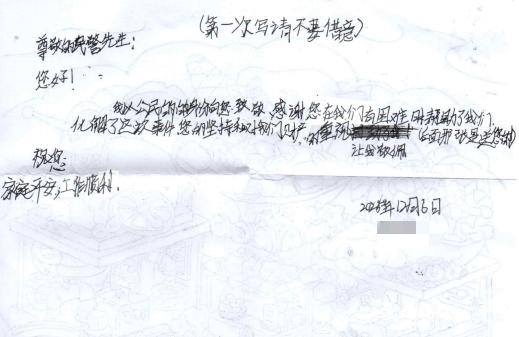 (第一次写请不要借意)
尊敬的民警先生:
您好!
我以公民的身份向您致敬,感谢您在我们有困难时帮助了我们,
化解了这次事件您的坚持和对我们财产的重视 (后面那张是送您的)
让我敬佩
祝您:
家庭平安,工作顺利.
12月6日